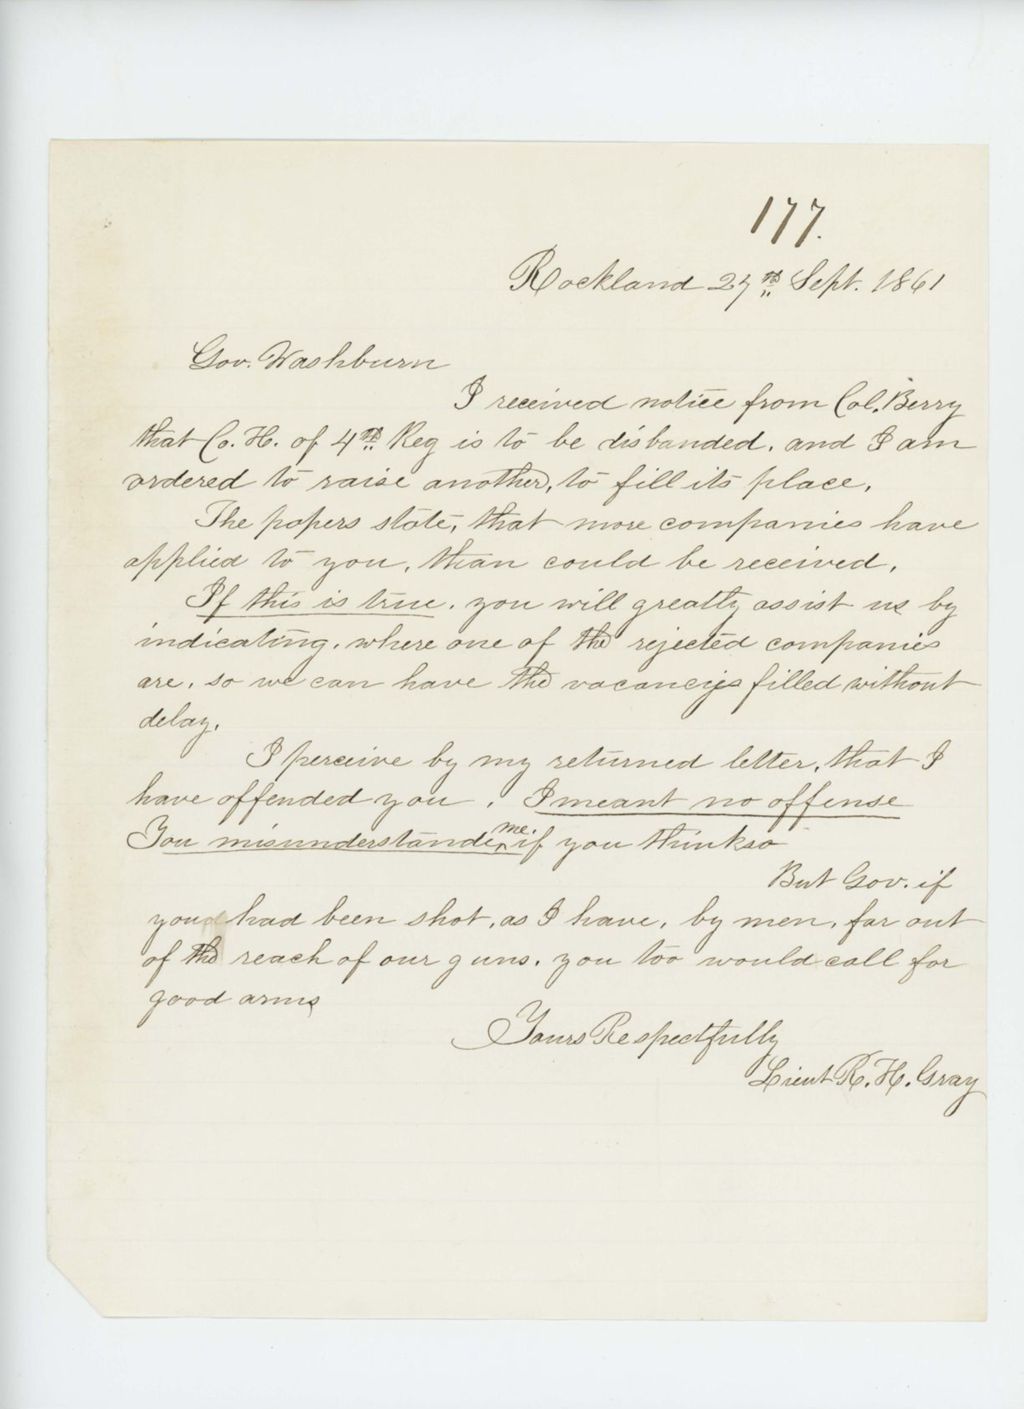 177.
Rockland 27th Sept. 1861
Gov. Washburn
I received notice from Col. Berry
that Co. H. of 4th Reg is to be disbanded, and I am
ordered to raise another, to fill its place.
The papers state, that more companies have
applied to you, than could be received.
If this is true, you will greatly assist us by
indicating, where one of the rejected companies
are, so we can have the vacancies filled without
delay.
I perceive by my returned letter, that I
have offended you. I meant no offense
You misunderstand me. if you think so
But Gov. if
you had been shot, as I have, by men, far out
of the reach of our guns, you too would call for
good arms
Yours Respectfully
Lieut R. H. Gray